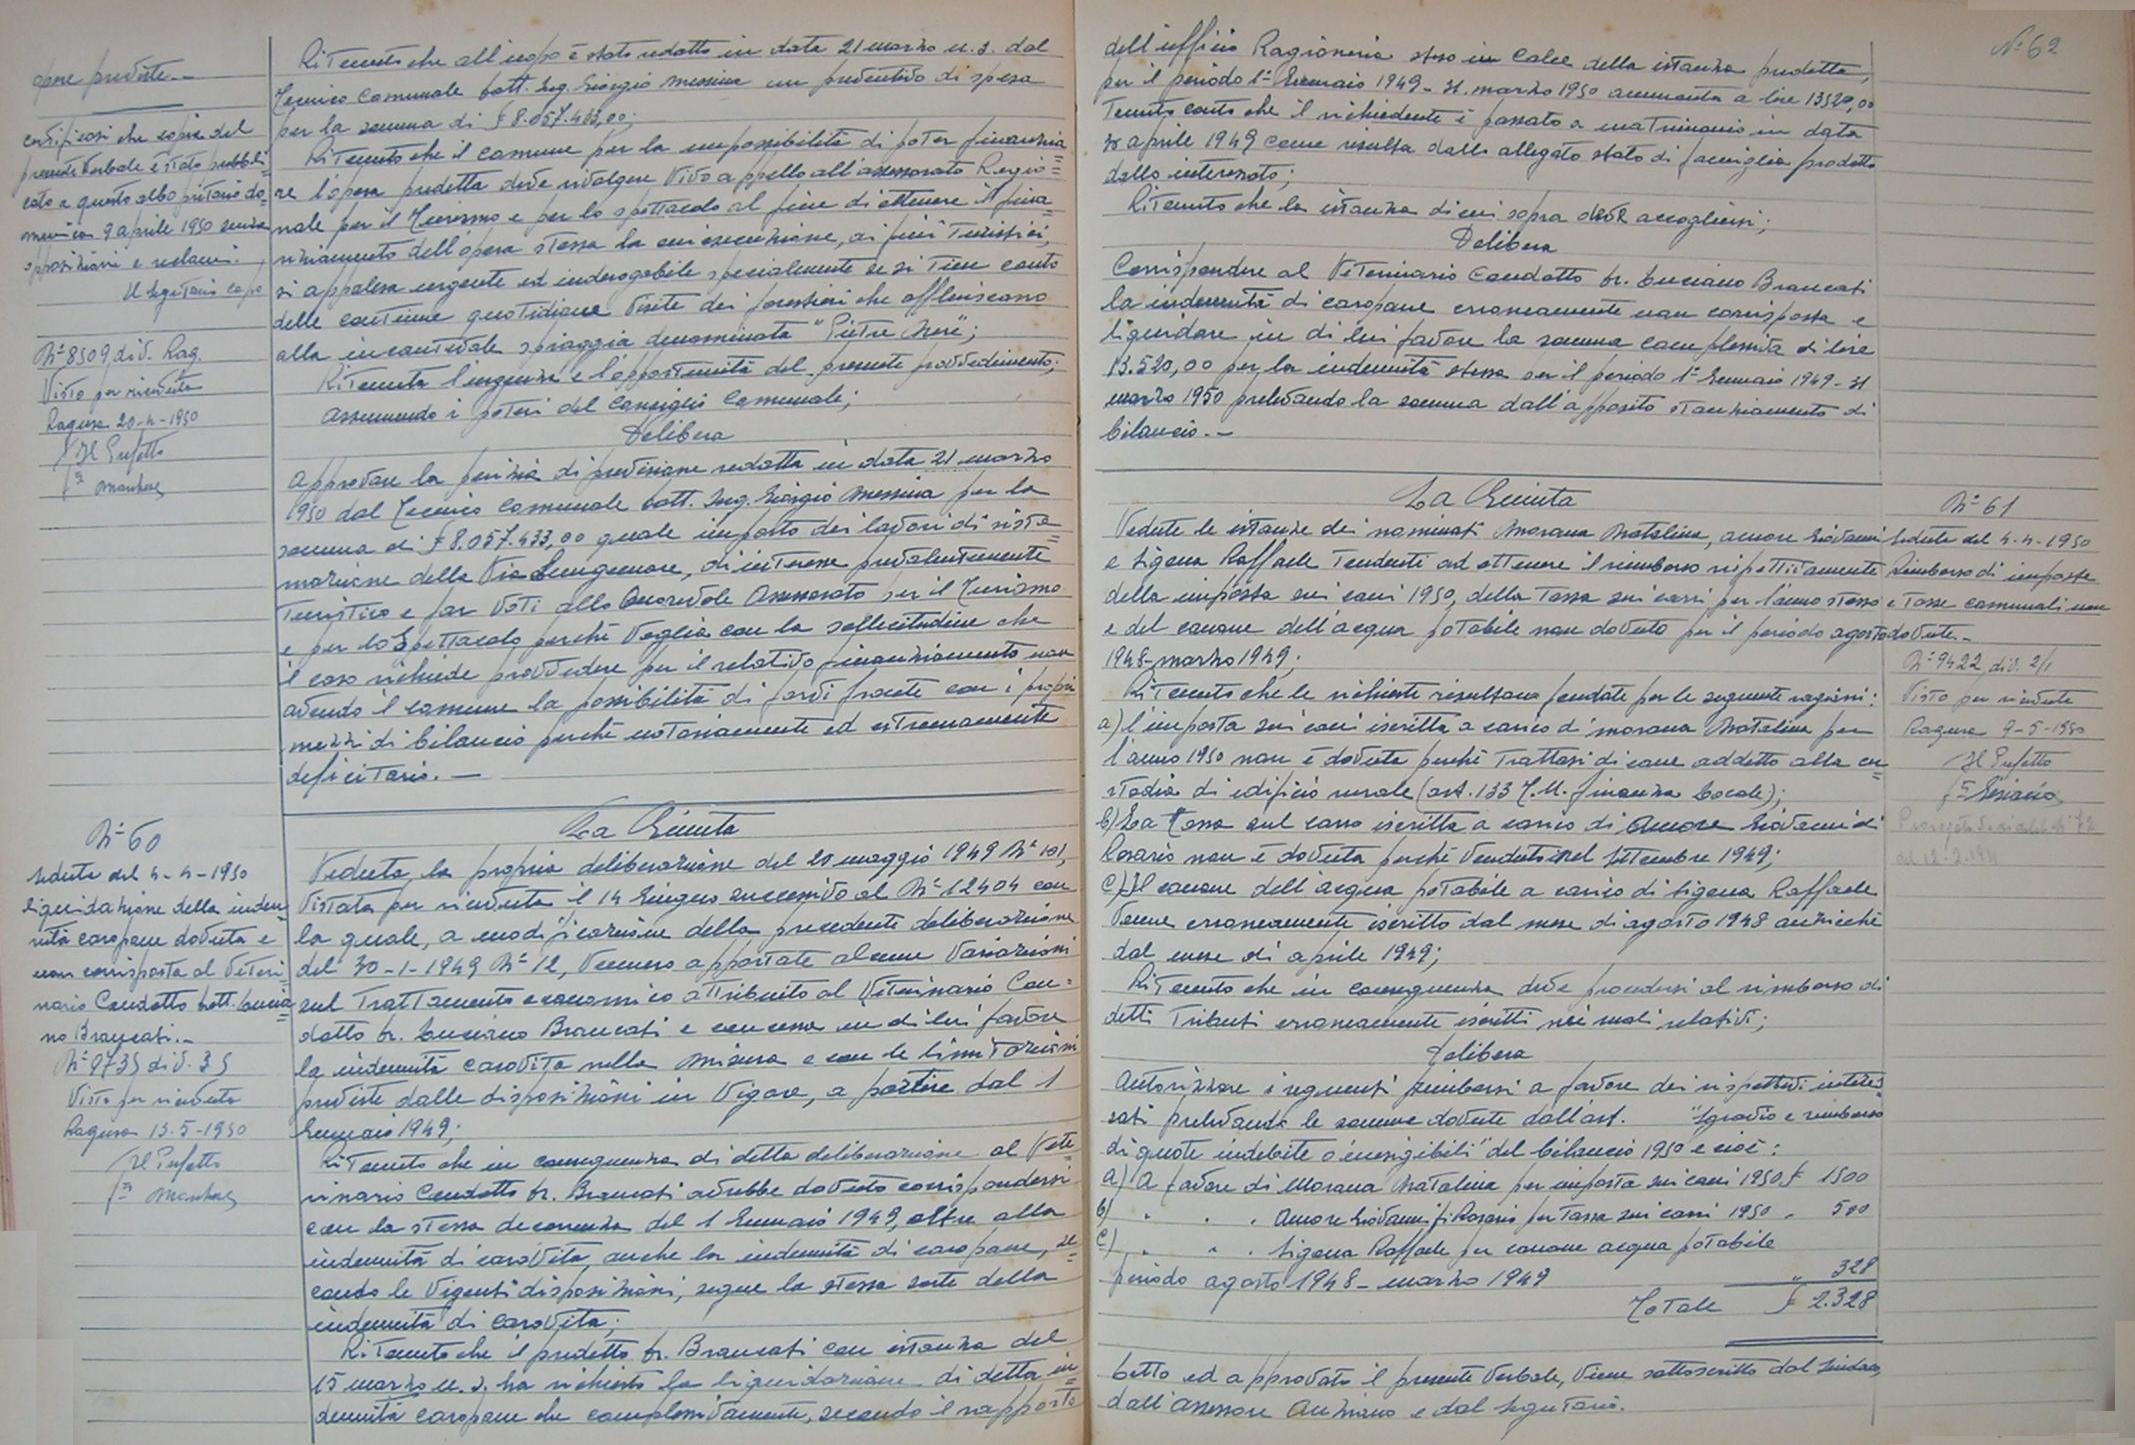 opere previste.—
certificasi che copia del
presente verbale è stato pubbli=
cato a questo albo pretorio do=
menica 9 aprile 1950 senza
opposizioni e reclami.
Il Segretario capo
N° 8509 div. Rag.
Visto per ricevuta
Ragusa 20-4-1950
Il Prefetto
Ritenuto che all'uopo è stato redatto in data 21 marzo u.s. dal
Tecnico Comunale dott. Ing. Giorgio Messina un preventivo di spesa
per la somma di £ 8.057.433,00;
Ritenuto che il comune per la impossibilità di poter finanzia=
re l'opera predetta deve rivolgere vivo appello all'assessorato Regio=
nale per il Turismo e per lo spettacolo al fine di ottenere il finan=
ziamento dell'opera stessa la cui esecuzione, ai fini turistici,
si appalesa urgente ed inderogabile specialmente se si tien conto
delle continue quotidiane visite dei forestieri che affluiscono
alla incantevole spiaggia denominata "Pietre Nere";
Ritenuta l'urgenza e l'opportunità del presente provvedimento;
assumendo i poteri del Consiglio Comunale;
Delibera
Approvare la perizia di previsione redatta in data 21 marzo
1950 dal Tecnico Comunale dott. Ing. Giorgio Messina per la
somma di £ 8.057.433,00 quale importo dei lavori di siste=
mazione della Via Lungomare, di interesse prevalentemente
turistico e far voti allo Onorevole Assessorato per il Turismo
e per lo Spettacolo perchè voglia con la sollecitudine che
il caso richiede provvedere per il relativo finanziamento non
avendo il comune la possibilità di farvi fronte con i propri
mezzi di bilancio perchè notoriamente ed estremamente
deficitario.—
N° 60
Seduta del 4-4-1950
Liquidazione della inden=
nità caropane dovuta e
non corrisposta al Veteri=
nario Condotto dott. Lucia=
no Brancati.—
N° 9735 div. 3S
Visto per ricevuta
Ragusa 13-5-1950
Il Prefetto
La Giunta
Veduta la propria deliberazione del 20 maggio 1949 N° 101,
vistata per ricevuta il 14 Giugno successivo al N° 12404 con
la quale, a modificazione della precedente deliberazione
del 30-1-1949 N° 12, vennero apportate alcune variazioni
sul trattamento economico attribuito al Veterinario Con=
dotto Dr. Luciano Brancati e concessa in di lui favore
la indennità carovita nella misura e con le limitazioni
previste dalle disposizioni in vigore, a partire dal 1
Gennaio 1949;
Ritenuto che in conseguenza di detta deliberazione al Vete=
rinario Condotto Dr. Brancati avrebbe dovuto corrispondersi
con la stessa decorrenza del 1 Gennaio 1949, oltre alla
indennità di carovita, anche la indennità di caropane, se=
condo le vigenti disposizioni, segue la stessa sorte della
indennità di carovita;
Ritenuto che il predetto Dr. Brancati con istanza del
15 marzo u.s. ha richiesto la liquidazione di detta in=
dennità caropane che complessivamente, secondo il rapporto
N° 62
dell'ufficio Ragioneria steso in calce della istanza predetta,
per il periodo 1° Gennaio 1949 - 31 marzo 1950 ammonta a lire 13520,00
Tenuto conto che il richiedente è passato a matrimonio in data
aprile 1949 come risulta dallo allegato stato di famiglia prodotto
dallo interessato;
Ritenuto che la istanza di cui sopra deve accogliersi;
Delibera
Corrispondere al Veterinario Condotto Dr. Luciano Brancati
la indennità di caropane erroneamente non corrisposta e
liquidare in di lui favore la somma complessiva di lire
13.520,00 per la indennità stessa per il periodo 1° Gennaio 1949 - 31
marzo 1950 prelevando la somma dall'apposito stanziamento di
bilancio.—
La Giunta
Vedute le istanze dei nominati Morana Natalina, Amore Giovanni
e Sigona Raffaele tendenti ad ottenere il rimborso rispettivamente
della imposta sui cani 1950, della tassa sui carri per l'anno stesso
e del canone dell'acqua potabile non dovuto per il periodo agosto
1948-marzo 1949;
Ritenuto che le richieste risultano fondate per le seguenti ragioni:
a) l'imposta sui cani iscritta a carico di Morana Natalina per
l'anno 1950 non è dovuta perchè trattasi di cane addetto alla cu=
stodia di edificio rurale (art. 133 T.U. finanza locale);
b) La tassa sul carro iscritta a carico di Amore Giovanni di
Rosario non è dovuta perchè vendutosi nel Settembre 1949;
c) Il canone dell'acqua potabile a carico di Sigona Raffaele
venne erroneamente iscritto dal mese di agosto 1948 anzicchè
dal mese di aprile 1949;
Ritenuto che in conseguenza deve procedersi al rimborso di
detti tributi erroneamente iscritti nei ruoli relativi;
Delibera
Autorizzare i seguenti rimborsi a favore dei rispettivi interes=
sati prelevando le somme dovute dall'art. "Sgravio e rimborso
di quote indebite o inesigibili" del bilancio 1950 e cioè:
a) A favore di Morana Natalina per imposta sui cani 1950 £ 1500
b) " " " Amore Giovanni fi Rosario per tassa sui carri 1950 " 500
c) " " " Sigona Raffaele per canone acqua potabile
periodo agosto 1948 - marzo 1949 " 328
Totale £ 2.328
Letto ed approvato il presente verbale, viene sottoscritto dal Sindaco,
dall'assessore Anziano e dal Segretario.
N° 61
Seduta del 4-4-1950
Rimborso di imposte
e tasse comunali non
dovute.—
N° 9422 div. 2/1
Visto per ricevuta
Ragusa 9-5-1950
Il Prefetto